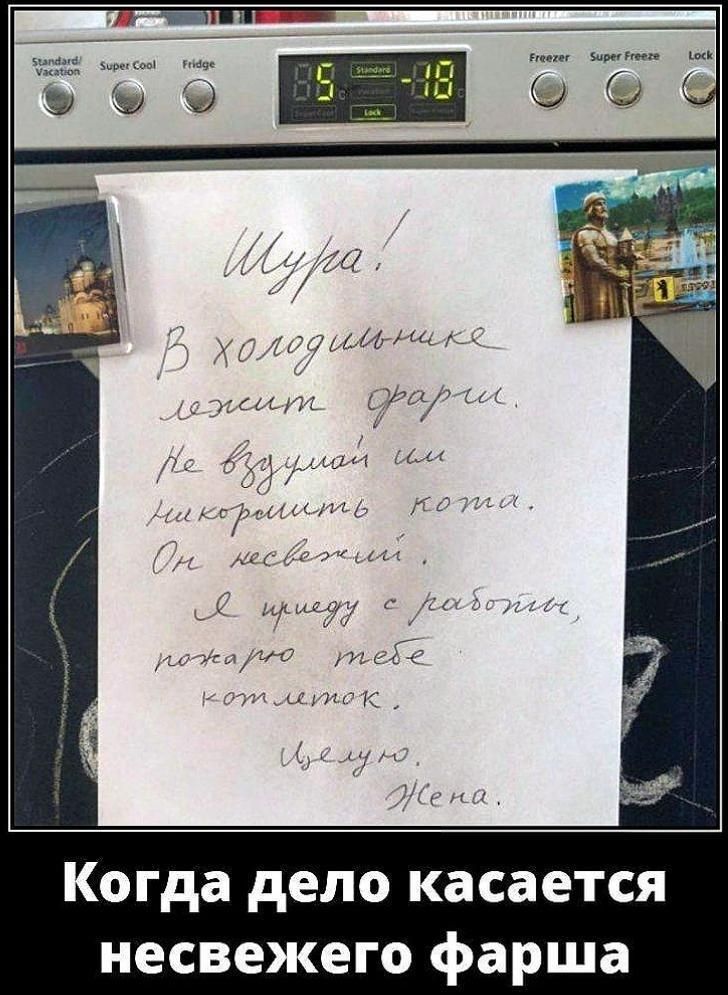 Standard/ Vacation
Super Cool
Fridge
5 Standard -18
Vacation
Lock
Freezer
Super Freeze
Lock
Шура!
В холодильнике
лежит фарш.
Не вздумай им
накормить кота.
Он несвежий.
Я приеду с работы,
пожарю тебе
котлеток.
Целую.
Жена.
Когда дело касается
несвежего фарша